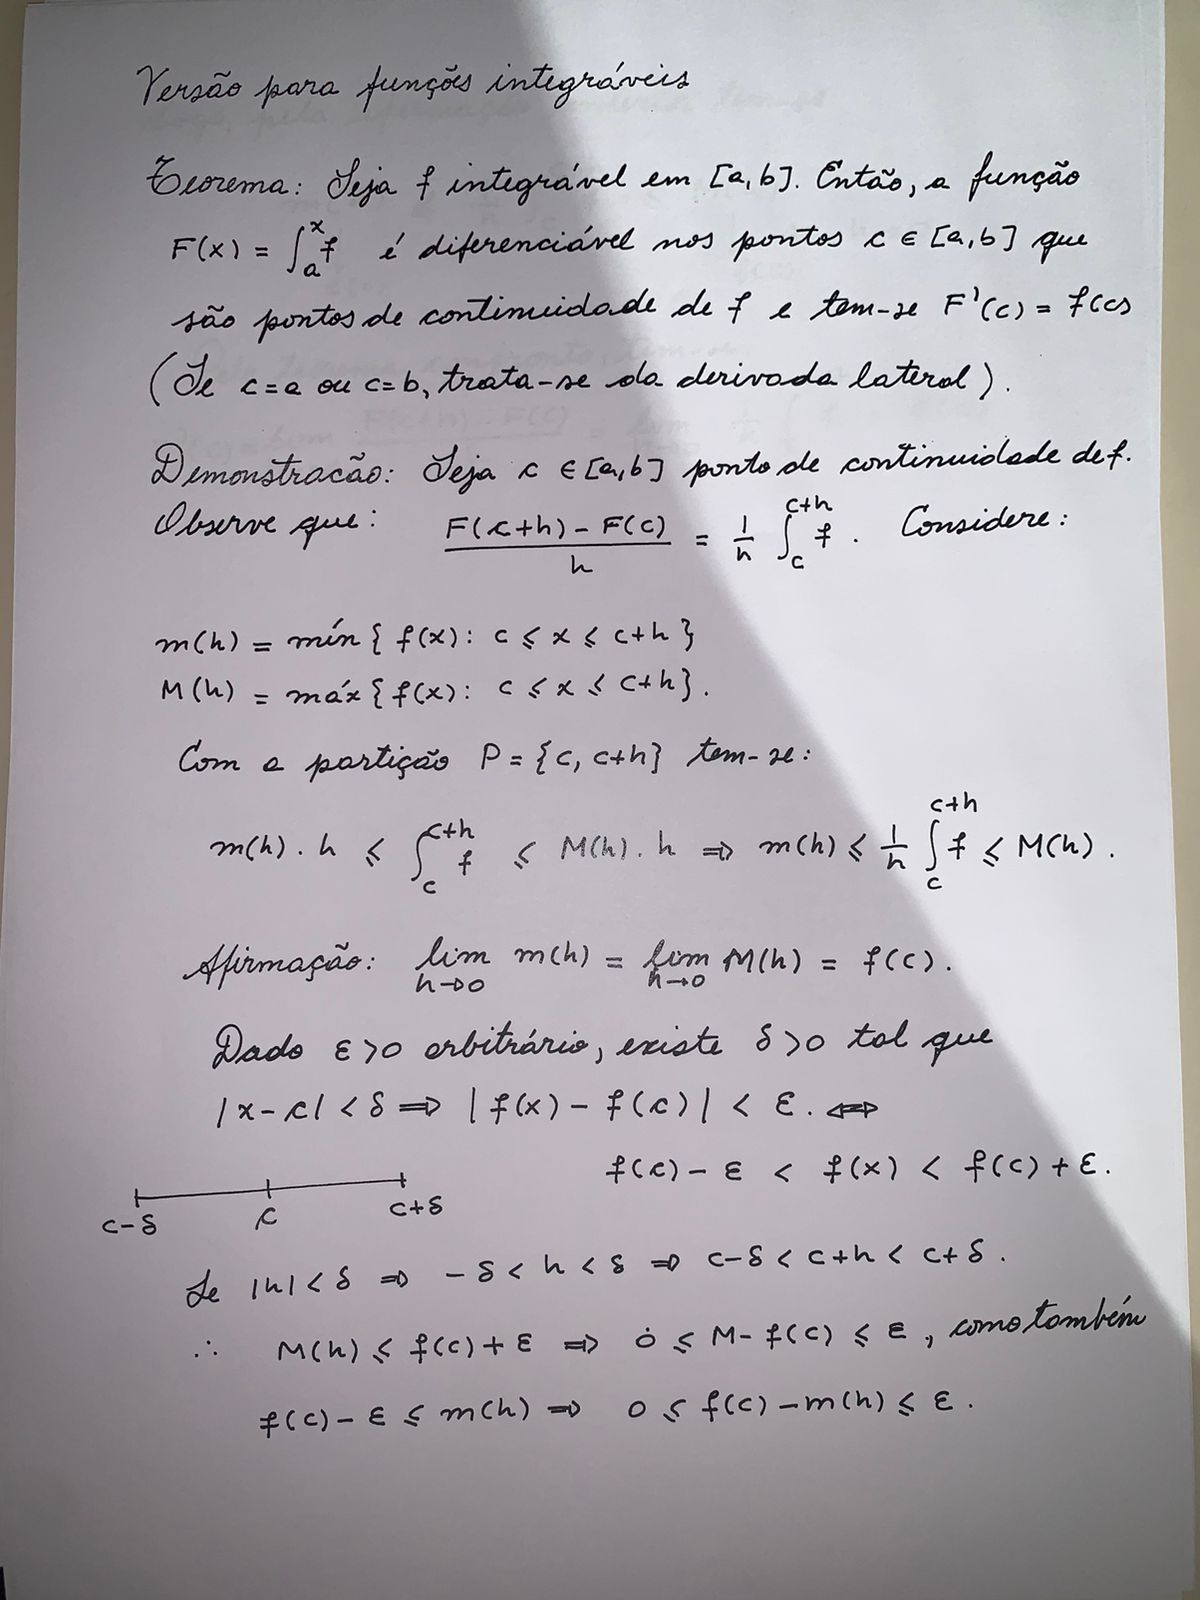 Versão para funções integráveis
Teorema: Seja f integrável em [a,b]. Então, a função
F(x) = ∫ₐˣ f é diferenciável nos pontos c ∈ [a,b] que
são pontos de continuidade de f e tem-se F'(c) = f(c)
(Se c=a ou c=b, trata-se da derivada lateral).
Demonstracão: Seja c ∈ [a,b] ponto de continuidade de f.
Observe que: (F(c+h) - F(c))/h = 1/h ∫_c^{c+h} f. Considere:
m(h) = mín{ f(x): c ≤ x ≤ c+h }
M(h) = máx{ f(x): c ≤ x ≤ c+h }.
Com a partição P = {c, c+h} tem-se:
m(h) . h ≤ ∫_c^{c+h} f ≤ M(h) . h ⇒ m(h) ≤ 1/h ∫_c^{c+h} f ≤ M(h).
Afirmação: lim_{h→0} m(h) = lim_{h→0} M(h) = f(c).
Dado ε>0 arbitrário, existe δ>0 tal que
|x-c| < δ ⇒ |f(x) - f(c)| < ε. ⇔
f(c) - ε < f(x) < f(c) + ε.
c-δ c c+δ
Se |h| < δ ⇒ -δ < h < δ ⇒ c-δ < c+h < c+δ.
∴ M(h) ≤ f(c) + ε ⇒ 0 ≤ M - f(c) ≤ ε, como também
f(c) - ε ≤ m(h) ⇒ 0 ≤ f(c) - m(h) ≤ ε.